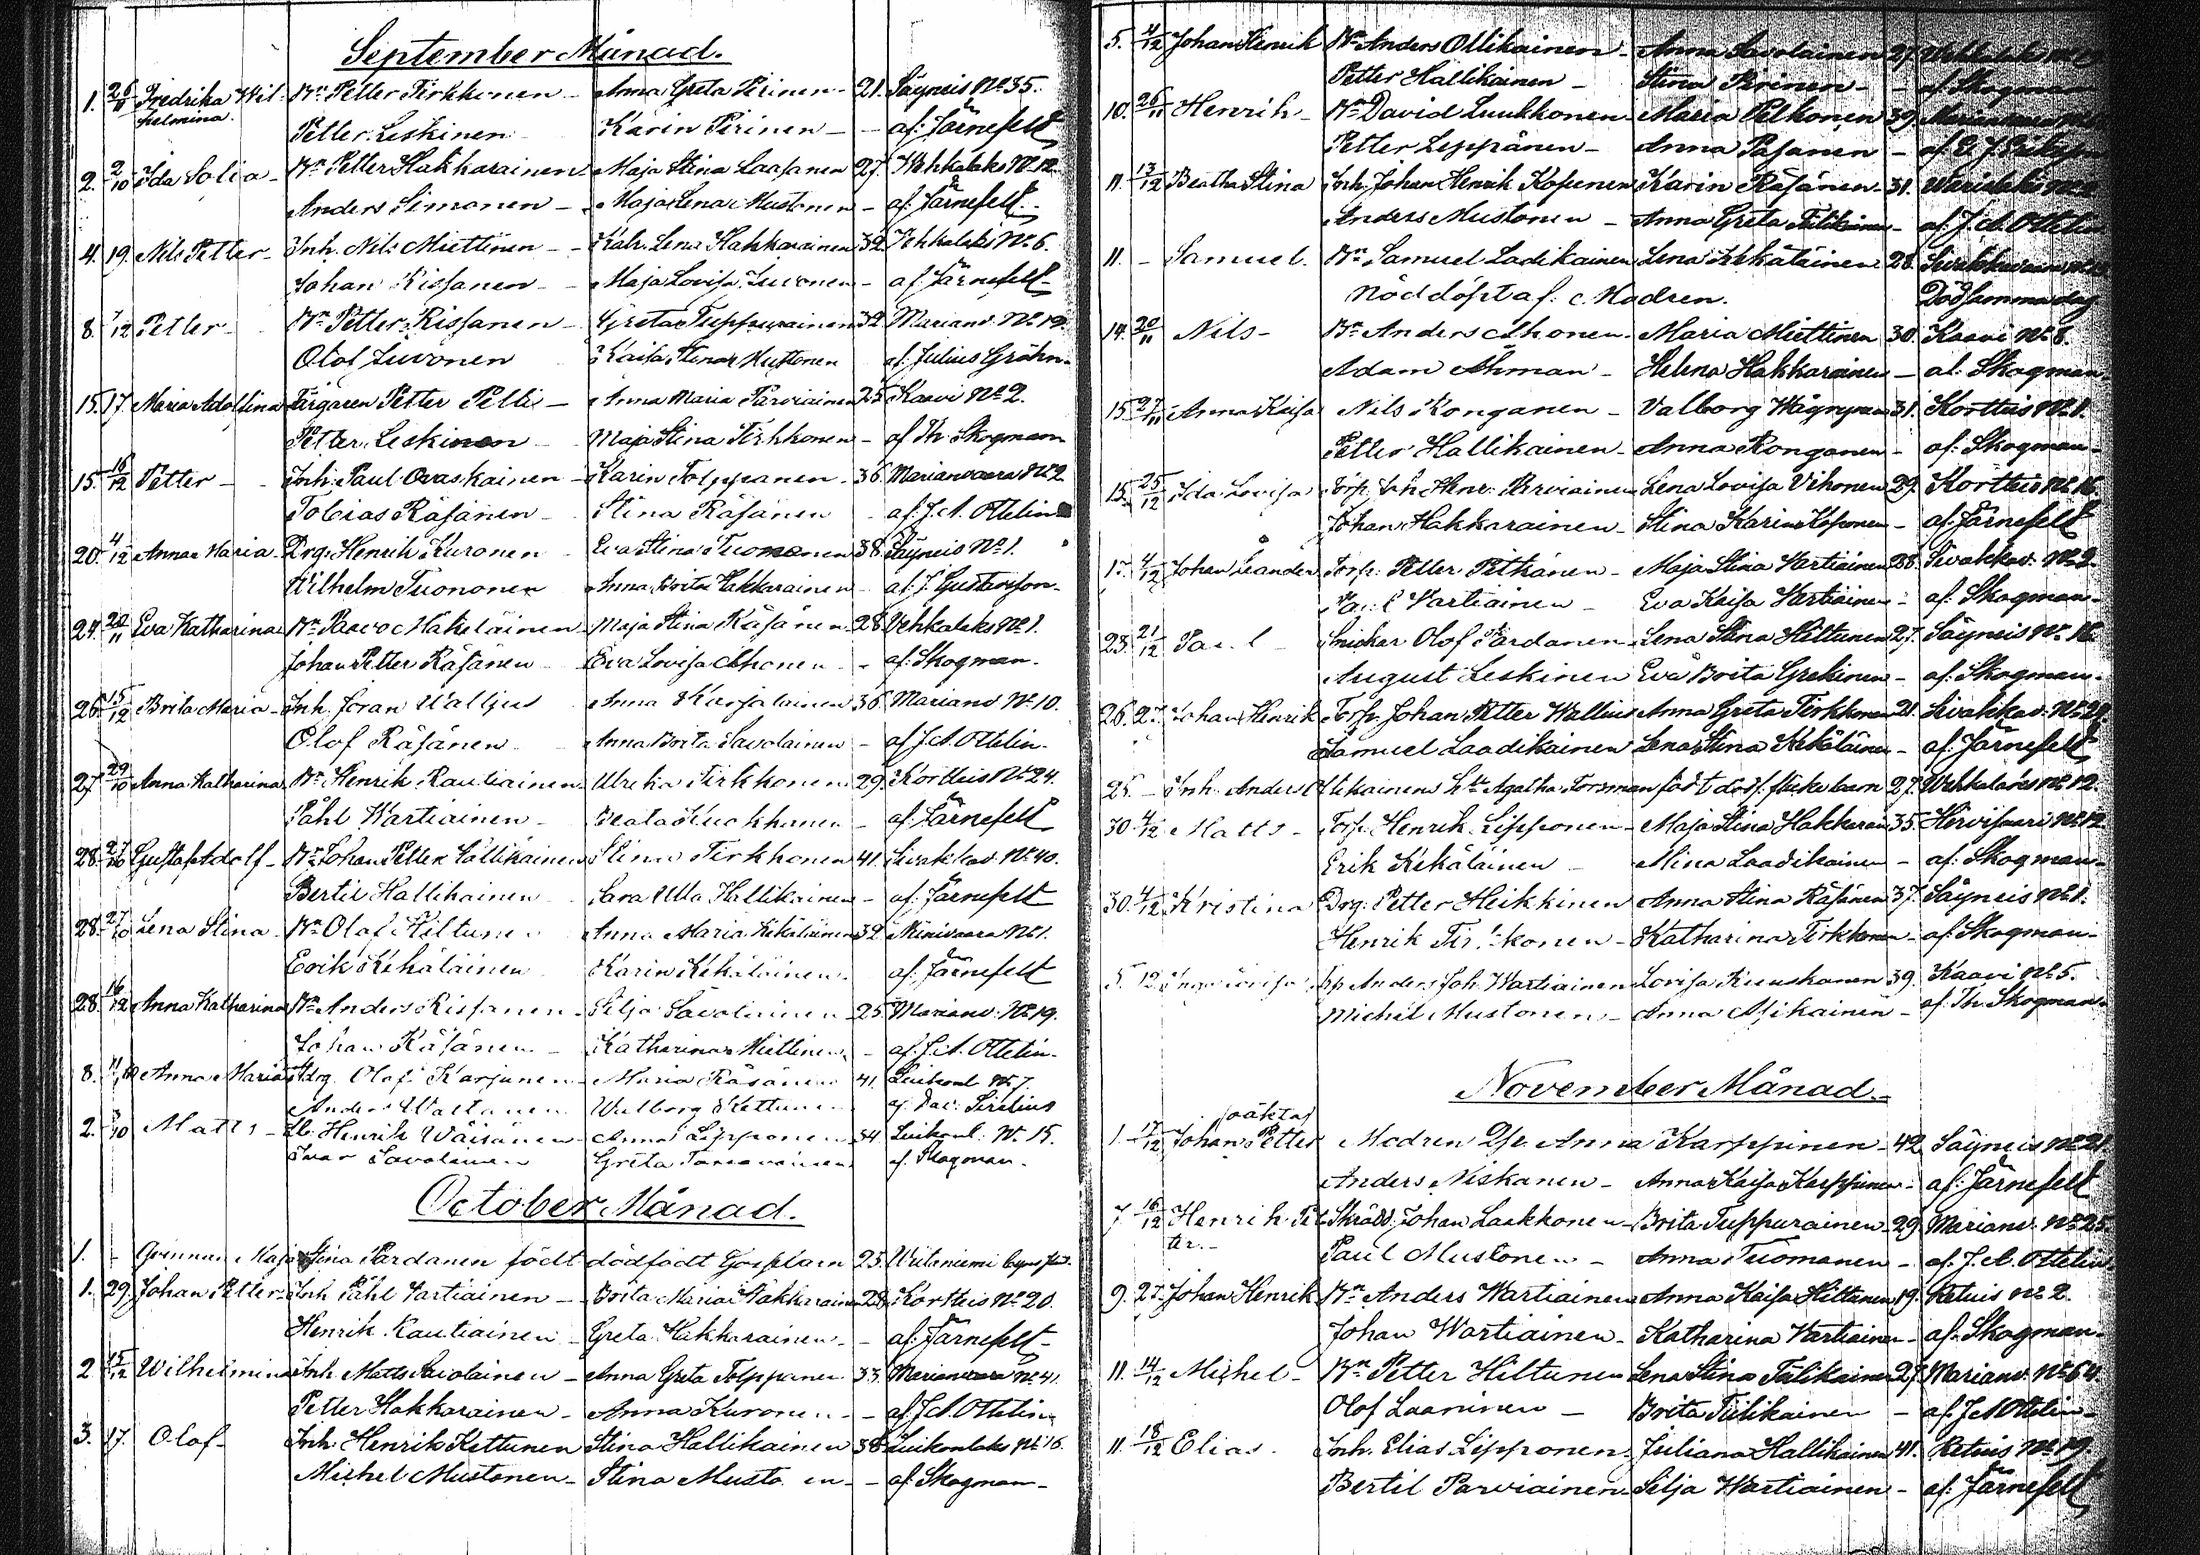 September Månad.
1. 26/11 Fredrika Wil- Bn Petter Tirkkonen - Anna Greta Pirinen - 21. Säyneis No 35.
helmina. Petter Leskinen Karin Pirinen - - af: Järnefelt
2. 2/10 Ida Sofia - Bn Petter Hakkarainen Maja Stina Laasanen 27. Wehkalaks No 12.
Anders Simonen - Maja Lena Mustonen - af: Järnefelt.
4. 19. Nils Petter - Inh. Nils Miettinen - Katr. Lena Hakkarainen 32 Vehkalaks No 6.
Johan Rissanen - Maja Lovisa Juvonen - af: Järnefelt
8. 1/12 Petter - Bn Petter Rissanen - Greta Tuppurainen 32 Marianv. No 19.
Olof Juvonen Kaisa Stina Huttonen af Julius Gråhn.
15. 17. Maria Adolfina Färgaren Petter Pelli - Anna Maria Parviainen 25 Kaavi No 2.
Petter Leskinen - Maja Stina Tirkkonen - af Th. Skogman
15. 16/12 Petter - Inh. Paul Ovaskainen - Karin Tolppanen - 36. Marianvaara No 2
Tobias Räsänen - Stina Räsänen af: J. A. Ottelin
20. 4/12 Anna Maria - Drg. Henrik Kuronen - Eva Stina Tuomonen 38. Säyneis No 1.
Wilhelm Tuononen Anna Brita Hakkarainen - af: J. Gustafsson.
24. 22/11 Eva Katharina Bn Paavo Mäkeläinen - Maja Stina Räsänen 28 Vehkalaks No 1.
Johan Petter Räsänen - Eva Lovisa Ahonen - - af: Skogman.
26. 15/12 Brita Maria - Inh. Jöran Walljus Anna Karjalainen 36. Marianv No 10.
Olof Räsänen - Anna Brita Savolainen - af J. A. Ottelin.
27. 29/10 Anna Katharina Bn Henrik Rautiainen Ulrika Tirkkonen 29. Kortteis No 24.
Påhl Wartiainen - Beata Kuckkonen - af: Järnefelt
28. 27/10 Gustaf Adolf - Bn Johan Petter Hallikainen Stina Tirkkonen 41. Sivakkav. No 40.
Bertil Hallikainen Sara Ulla Hallikainen - af: Järnefelt
28. 27/10 Lena Stina Bn Olof Hiltunen Anna Maria Kekäläinen 32 Niinivaara No 1.
Erik Kekäläinen Karin Kekäläinen af: Järnefelt
28. 16/12 Anna Katharina Bn Anders Rissanen - Silja Savolainen 25 Marianv. No 19.
Johan Räsänen - Katharina Miettinen - af: J. A. Ottelin.
8. 11/12 Anna Maria Adrg. Olof Karjunen - Maria Räsänen 41. Luikonl No 7.
Anders Wartanen Walborg Kettunen af Dav: Sirelius
2. /10 Matts - Henrik Wäisänen Anna Lipponen 34 Luikonl. No 15.
Ivar Savolainen Greta af. Skogman.
October Månad.
1. - Qvinnan Maja Stina Pardanen födt dödfödt Gossebarn 25.
1. 29. Johan Petter - Inh Påhl Vartiainen - Brita Maria Hakkarainen 28. Kortteis No 20.
Henrik Rautiainen - Greta Hakkarainen - - af: Järnefelt -
2 15/12 Wilhelmina Inh. Matts Savolainen - Anna Greta Tolppanen 33. Marianvaara No 41.
Petter Hakkarainen - Anna Kuronen - - af J. A. Ottelin
3. 17. Olof - Inh. Henrik Kettunen Stina Hallikainen 38 Luikonlaks No 16.
Michel Mustonen - Stina Musto en - - af: Skogman -
5. 4/12 Johan Henrik Bn Anders Ollikainen - Anna Savolainen 27.
Petter Hallikainen - Stina Pirinen - - af Skogman
10. 26/11 Henrik - Bn David Luukkonen Maria Pelkonen 39.
Petter Leppänen - Anna Pasanen -
11. 13/12 Beatha Stina Inh. Johan Henrik Kosunen Karin Räsänen - 31.
Anders Mustonen - Anna Greta Tiilikainen - af: J. A. Ottelin
11. - Samuel. Bn Samuel Ladikainen Lena Kekäläinen 28. Sivakkavaara
Nöddöpt af: c. Modren. Död samma dag
14. 20/11 Nils - Bn Anders Ahonen - Maria Miettinen 30. Kaavi No 8.
Adam Åhman - Helena Hakkarainen - af: Skogman.
15. 27/11 Anna Kaisa Nils Ronganen - Valborg 31. Kortteis No 1.
Petter Hallikainen - Anna Ronganen - af: Skogman -
15. 25/12 Ida Lovisa Torp. Joh. Henr. Parviainen Lena Lovisa Vihonen 29. Kortteis No 16.
Johan Hakkarainen Stina Karin Kosonen - af: Järnefelt
17. 4/12 Johan Leander Torp. Petter Pitkänen - Maja Stina Vartiainen 28. Sivakkav. No 2.
Paul Vartiainen - Eva Kaisa Vartiainen - af: Skogman -
23. 21/12 Paul - Snickar Olof Pardanen Lena Stina Hiltunen 27. Säyneis No 16.
August Leskinen Eva Brita Grekinen - af: Skogman -
26. 27. Johan Henrik Torp. Johan Petter Wallius Anna Greta Tirkkonen 21. Sivakkav. No 29.
Samuel Laadikainen Lena Stina Kekäläinen - af: Järnefelt
25. - Inh. Anders Ollikainens h:u Agatha Forsman födt dödf. flickebarn 27. Wehkalaks No 12.
30. 4/12 Matts - Torp. Henrik Lipponen - Maja Stina Hakkarain 35. Hirvisaari No 12
Erik Kekäläinen - Mina Laadikainen - af: Skogman -
30. 4/12 Kristina Drg. Petter Heikkinen Anna Stina Räsänen 37. Säyneis No 1.
Henrik Tirkkonen - Katharina Tirkkonen - af: Skogman -
5. 12 Inga Lovisa Anders Joh. Wartiainen Lovisa Kuuskanen 39. Kaavi No 5.
Michel Mustonen - Anna Asikainen - af: Th. Skogman -
November Månad. -
oäkta
1. 17/12 Johan Petter Modren Anna Karppinen - 42. Säyneis No 21.
Anders Niskanen - Anna Kaisa Karppinen - af: Järnefelt
7 16/12 Henrik Pet- Skrädd. Johan Laakkonen - Brita Tuppurainen 29. Marianv. No 25.
ter. - Paul Mustonen - Anna Tuomanen - af. J. A. Ottelin
9. 27. Johan Henrik Bn Anders Wartiainen Anna Kaisa Hiltunen 19. Retuis No 2.
Johan Wartiainen - Katharina Wartiainen - af: Skogman -
11. 14/12 Michel - Bn Petter Hiltunen Lena Stina Tiilikainen 27. Marianv. No 64.
Olof Laaninen - Brita Tiilikainen - af: J. A. Ottelin -
11. 18/12 Elias. Inh. Elias Lipponen Juliana Hallikainen 41. Retuis No 19.
Bertil Parviainen - Silja Wartiainen - af: Järnefelt